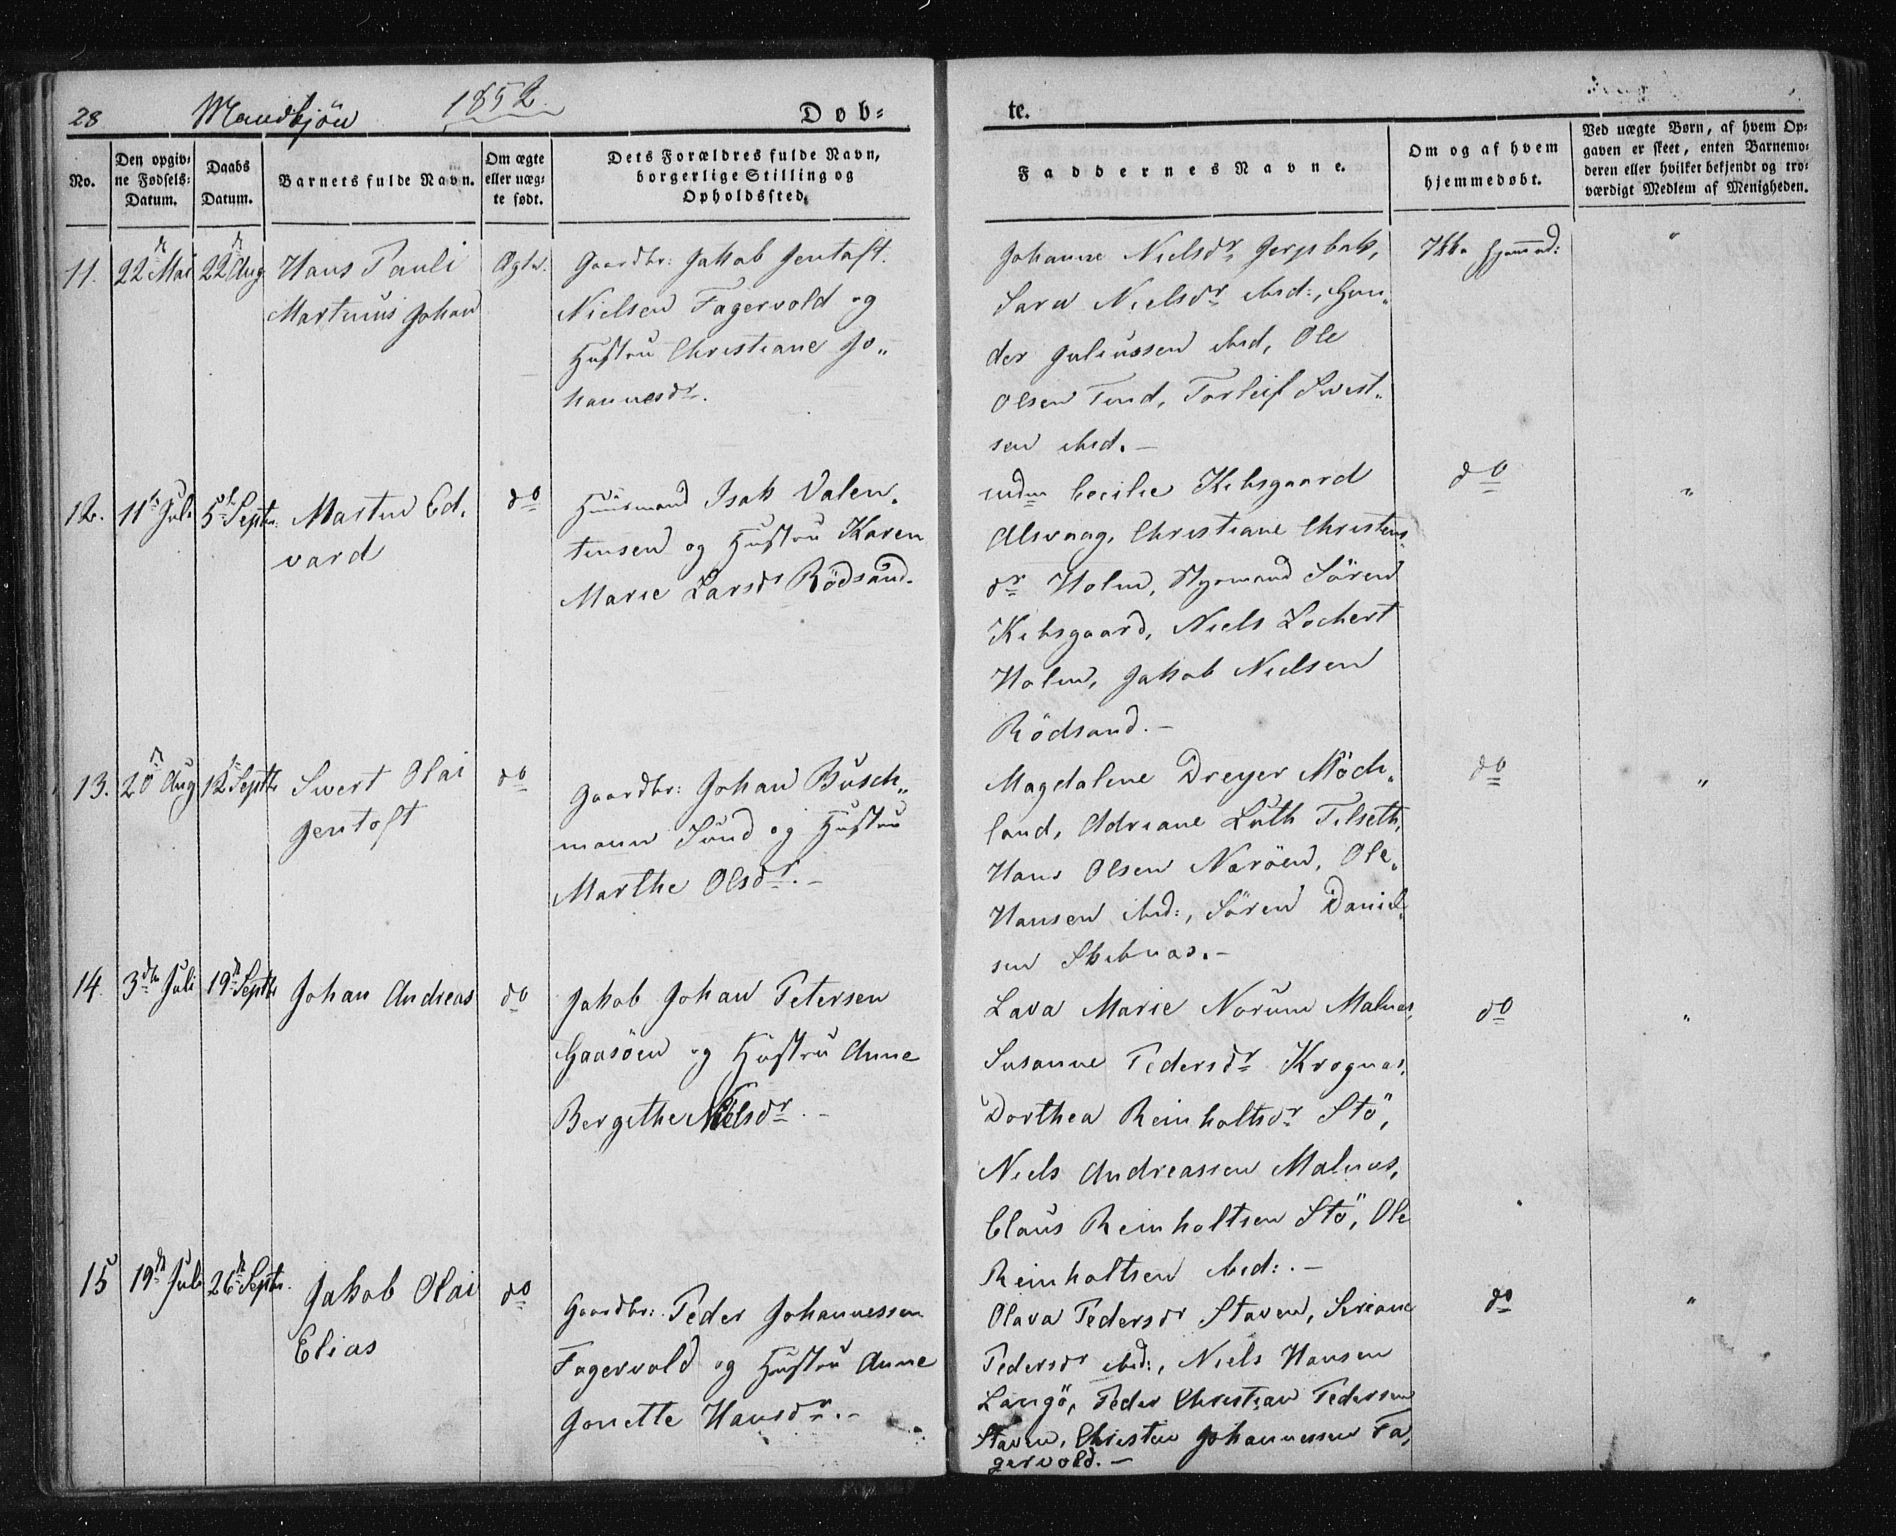 28 Mandkjön 1852. Dob-
te.
No.
Den opgiv-
ne Fødsels-
Datum.
Daabs
Datum.
Barnets fulde Navn.
Om ægte
eller uæg-
te født.
Dets Forældres fulde Navn,
borgerlige Stilling og
Opholdssted.
Faddernes Navne.
Om og af hvem
hjemmedøbt.
Ved uægte Børn, af hvem Op-
gaven er skeet, enten Barnemo-
deren eller hvilket bekjendt og tro-
værdigt Medlem af Menigheden.
11. 22 Mai 22 Aug
Hans Pauli
Martinus Johan
Ægte.
Gaardbr: Jakob Jentoft
Nielsen Fagervold og
Hustru Christiane Jo„
hannesdr.
Johanne Nielsdr Jerpbak,
Sara Nielsdr ibid:, Gun„
der Juliussen ibid, Ole
Olsen Tind, Torleif Sivert„
sen ibid.–
Ikke hjemmed:
"
12. 11te Juli 5te Septbr.
Martin Ed„
vard
do
Huusmand Isak Valen„
tinsen og Hustru Karen
Marie Larsdr Rödsand.
Cecilie Kibsgaard
Alsvaag, Christiane Christens„
dr Holm, Styrmand Sören
Kibsgaard, Niels Lockert
Holm, Jakob Nielsen
Rödsand.–
do
"
13. 20 Aug 12 Septbr
Sivert Olai
Jentoft
do
Gaardbr: Johan Busch„
mann Sund og Hustru
Marthe Olsdr.–
Magdalene Dreyer Möck„
land, Adriane Luth Tilseth,
Hans Olsen Naröen, Ole„
Hansen ibid:, Sören Daniel„
sen Skibnas.–
do
"
14. 3die Juli 19 Septbr
Johan Andreas
do
Jakob Johan Petersen
Gaasöen og Hustru Anne
Bergithe Nielsdr.–
Lava Marie Norum Malnas,
Susanne Pedersdr Krognas,
Dorthea Reinholtsdr Stö,
Niels Andreassen Malnas,
Claus Reinholtsen Stö, Ole
Reinholtsen ibid:.–
do
"
15 19de Juli 26de Septbr.
Jakob Olai
Elias
do
Gaardbr: Peder Johannessen
Fagervold og Hustru Anne
Jonette Hansdr.–
Olava Pedersdr Staven, Siriane
Pedersdr ibid:, Niels Hansen
Langö, Peder Christian Pedersen
Staven, Christen Johannessen Fa„
gervold.–
do
"